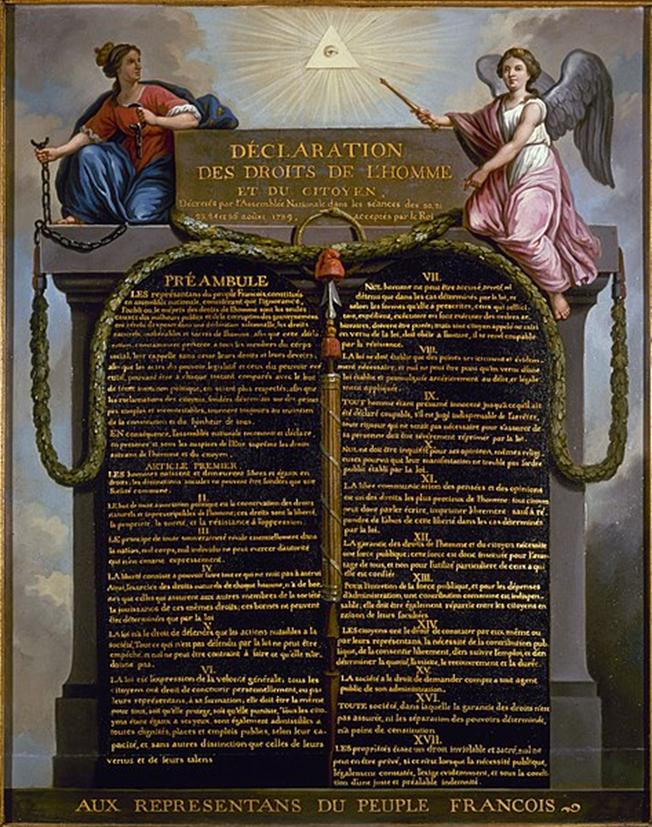 DÉCLARATION
DES DROITS DE L'HOMME
ET DU CITOYEN,
Décrétés par l'Assemblée Nationale dans les séances des 20, 21
23, 24 et 26 août 1789, acceptés par le Roi
PRÉAMBULE
LES représentans du peuple François, constitués
en assemblée nationale, considérant que l'ignorance,
l'oubli ou le mépris des droits de l'homme sont les seules
causes des malheurs publics et de la corruption des gouvernemens
ont résolu d'exposer dans une déclaration solemnelle, les droits
naturels, inaliénables et sacrés de l'homme, afin que cette décla-
ration, constamment présente à tous les membres du corps
social, leur rappelle sans cesse leurs droits et leurs devoirs
afin que les actes du pouvoir législatif et ceux du pouvoir exé-
cutif, pouvant être à chaque instant comparés avec le but
de toute institution politique, en soient plus respectés; afin que
les réclamations des citoyens, fondées désormais sur des princi-
pes simples et incontestables, tournent toujours au maintien
de la constitution et du bonheur de tous.
EN conséquence, l'assemblée nationale reconnoit et déclare
en présence et sous les auspices de l'Etre suprême les droits
suivans de l'homme et du citoyen.
ARTICLE PREMIER.
LES hommes naissent et demeurent libres et égaux en
droits; les distinctions sociales ne peuvent être fondées que sur
l'utilité commune.
II.
LE but de toute association politique est la conservation des droits
naturels et imprescriptibles de l'homme; ces droits sont la liberté
la propriété, la sureté, et la résistance à l'oppression.
III.
LE principe de toute souveraineté réside essentiellement dans
la nation, nul corps, nul individu ne peut exercer d'autorité
qui n'en émane expressement.
IV.
LA liberté consiste à pouvoir faire tout ce qui ne nuit pas à autrui
Ainsi, l'exercice des droits naturels de chaque homme, n'a de bor-
nes que celles qui assurent aux autres membres de la société
la jouissance de ces mêmes droits; ces bornes ne peuvent
être déterminées que par la loi
V.
LA loi n'a le droit de défendre que les actions nuisibles à la
société. Tout ce qui n'est pas défendu par la loi ne peut être
empêché, et nul ne peut être contraint à faire ce qu'elle n'or-
donne pas.
VI.
LA loi est l'expression de la volonté générale; tous les
citoyens ont droit de concourir personnellement, ou par
leurs représentans, à sa formation; elle doit être la même
pour tous, soit qu'elle protege, soit qu'elle punisse. Tous les cito-
yens étant égaux à ses yeux, sont également admissibles à
toutes dignités, places et emplois publics, selon leur ca-
pacité, et sans autres distinction que celles de leurs
vertus et de leurs talens
VII.
NUL homme ne peut être accusé, arreté ni
détenu que dans les cas déterminés par la loi, et
selon les formes qu'elle a prescrites, ceux qui sollici-
tent, expédient, exécutent ou font exécuter des ordres ar-
bitraires, doivent être punis; mais tout citoyen appelé ou saisi
en vertu de la loi, doit obéir à l'instant, il se rend coupable
par la résistance.
VIII.
LA loi ne doit établir que des peines strictement et évidem-
ment nécessaires, et nul ne peut être puni qu'en vertu d'une
loi établie et promulguée antérieurement au délit, et légale-
ment appliquée.
IX.
TOUT homme étant présumé innocent jusqu'à ce qu'il ait
été déclaré coupable, s'il est jugé indispensable de l'arrêter,
toute rigueur qui ne serait pas nécessaire pour s'assurer de
sa personne doit être sévèrement réprimée par la loi.
X.
NUL ne doit être inquiété pour ses opinions, mêmes religi-
euses pourvu que leur manifestation ne trouble pas l'ordre
public établi par la loi.
XI.
LA libre communication des pensées et des opinions
est un des droits les plus précieux de l'homme; tout citoyen
peut donc parler, écrire, imprimer librement, sauf à ré-
pondre de l'abus de cette liberté dans les cas déterminés
par la loi.
XII.
LA garantie des droits de l'homme et du citoyen nécessite
une force publique; cette force est donc instituée pour l'avan-
tage de tous, et non pour l'utilité particuliere de ceux à qui
elle est confiée.
XIII.
POUR l'entretien de la force publique, et pour les dépenses
d'administration, une contribution commune est indispen-
sable; elle doit être également répartie entre les citoyens en
raison de leurs facultés.
XIV.
LES citoyens ont le droit de constater par eux même ou
par leurs représentans, la nécessité de la contribution pub-
lique, de la consentir librement, d'en suivre l'emploi, et d'en
déterminer la quotité, l'assiette, le recouvrement et la durée.
XV.
LA société a le droit de demander compte à tout agent
public de son administration.
XVI.
TOUTE société, dans laquelle la garantie des droits n'est
pas assurée, ni les séparation des pouvoirs déterminée,
n'a point de constitution
XVII.
LES propriétés étant un droit inviolable et sacré, nul ne
peut en être privé, si ce n'est lorsque la nécessité publique,
légalement constatée, l'exige évidemment, et sous la condi-
tion d'une juste et préalable indemnité.
AUX REPRESENTANS DU PEUPLE FRANCOIS